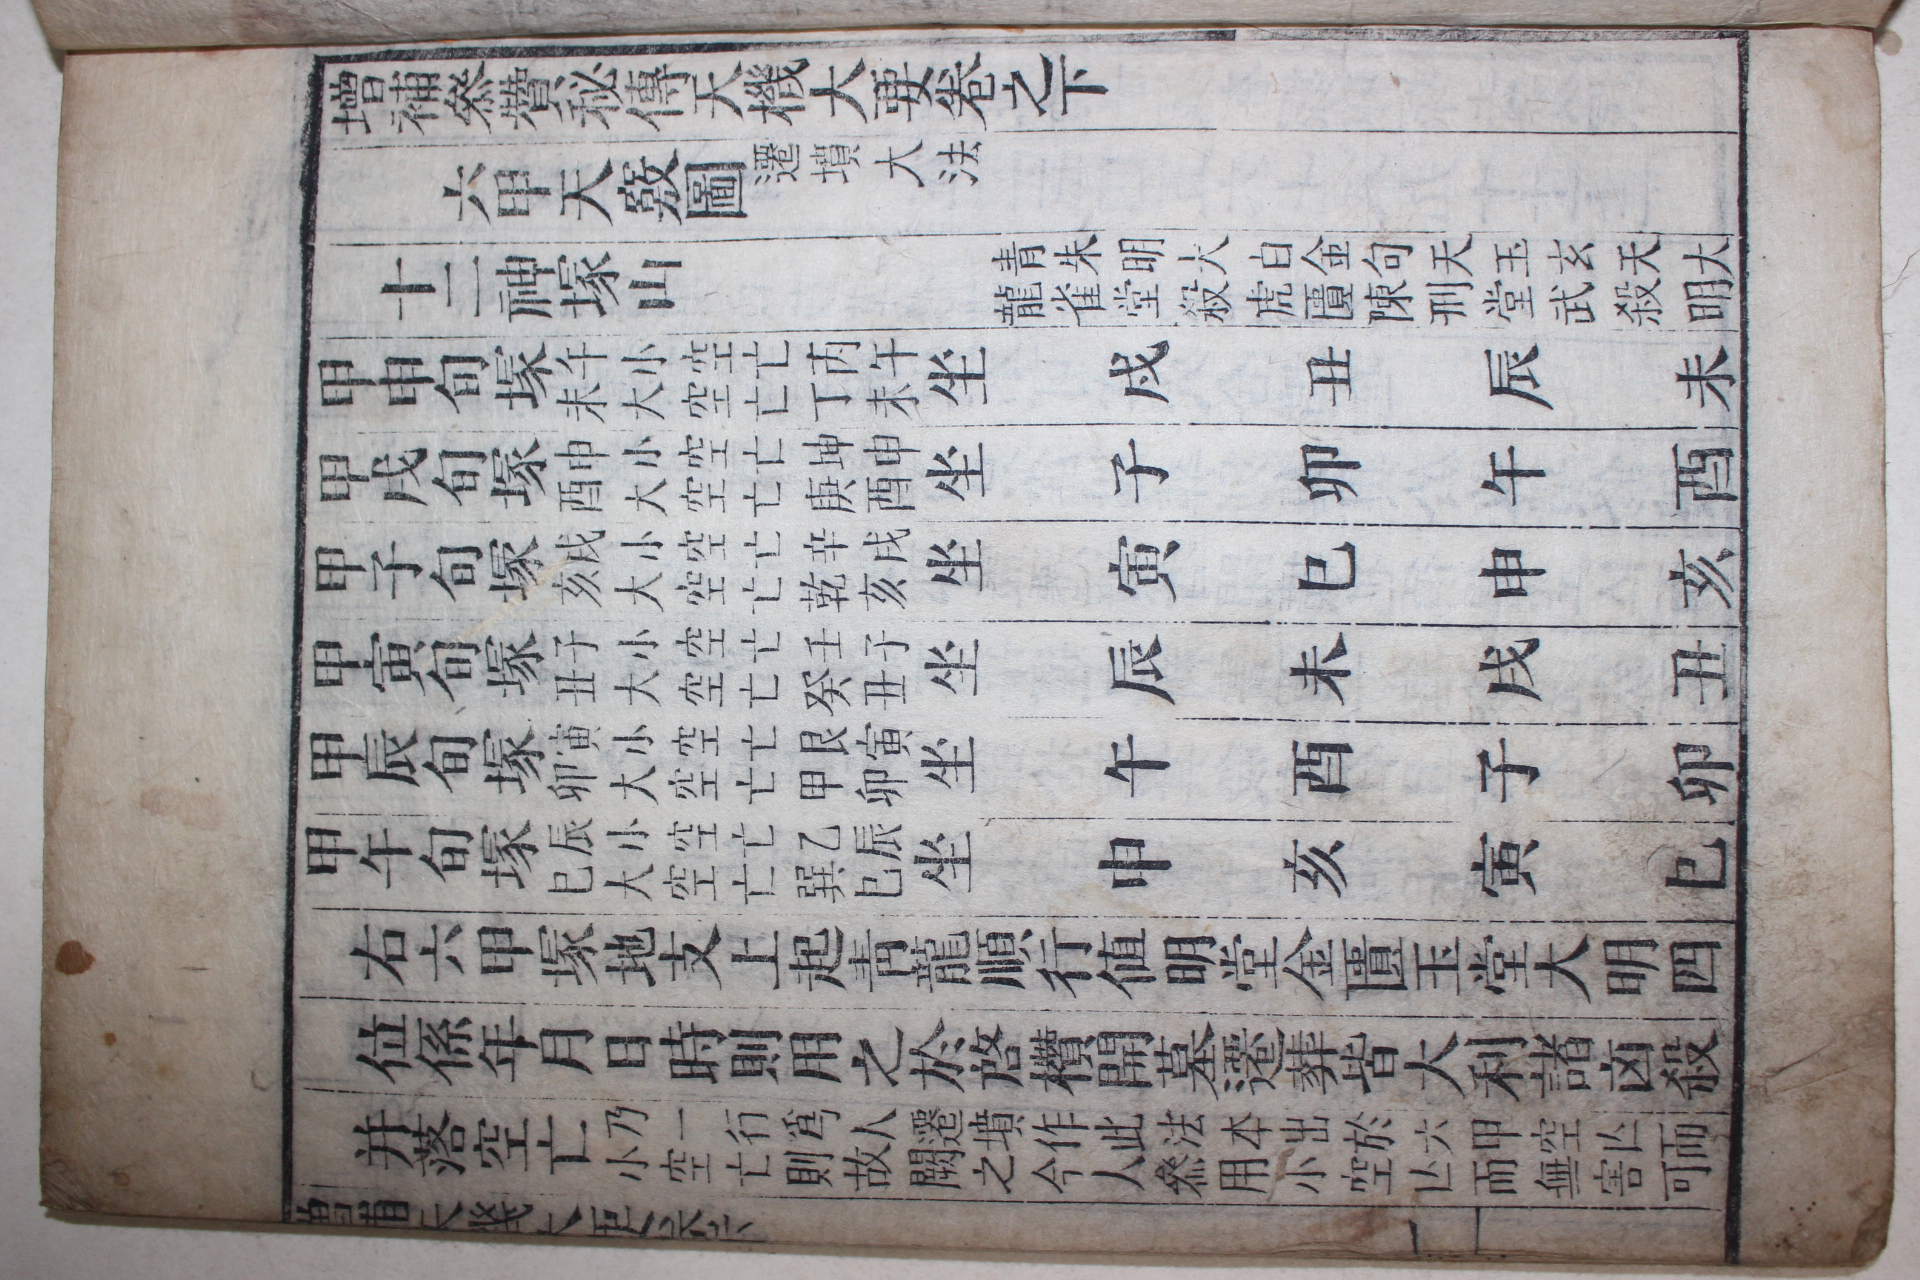 增補叅贊秘傳天機大要卷之下
六甲天竅圖 遷墳大法
十二神塚山 青朱明大白金句天玉玄天大
龍雀堂殺虎匱陳刑堂武殺明
甲申旬塚 午小空亡丙午
未大空亡丁未 坐 戌 丑 辰 未
甲戌旬塚 申小空亡坤申
酉大空亡庚酉 坐 子 卯 午 酉
甲子旬塚 戌小空亡辛戌
亥大空亡乾亥 坐 寅 巳 申 亥
甲寅旬塚 子小空亡壬子
丑大空亡癸丑 坐 辰 未 戌 丑
甲辰旬塚 寅小空亡艮寅
卯大空亡甲卯 坐 午 酉 子 卯
甲午旬塚 辰小空亡乙辰
巳大空亡巽巳 坐 申 亥 寅 巳
右六甲塚地支上起靑龍順行値明堂金匱玉堂大明四
位係年月日時則用之於啓欑開墓遷葬皆大利諸凶殺
并落空亡 乃一行爲人遷墳作此法本出於六甲空亡而
小空亡則故闕之今人叅用小空亡而無害可
增補天機大要卷下
二